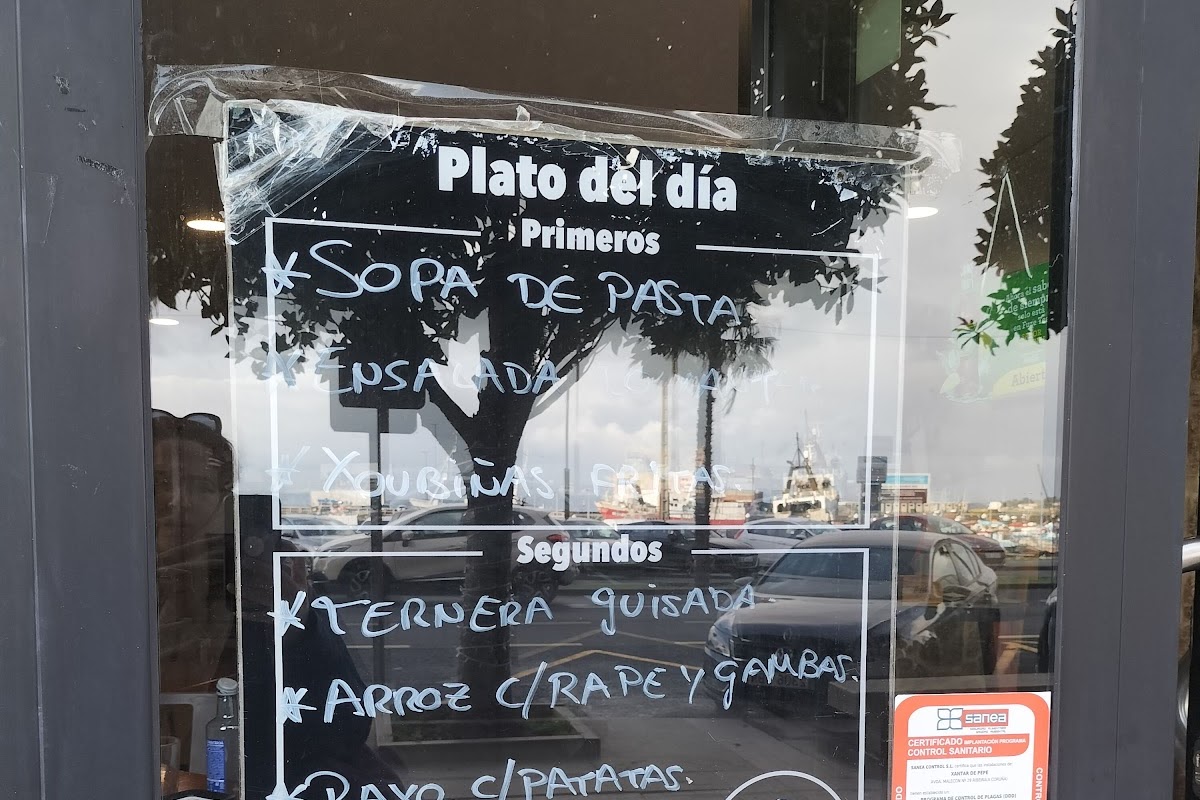 Plato del día
Primeros
* SOPA DE PASTA
* ENSALADA
* XOUBIÑAS FRITAS.
Segundos
* TERNERA guisADA.
* ARROZ C/RAPE Y gAMBAS.
* RAYO C/PATATAS.
sanea
CERTIFICADO IMPLANTACIÓN PROGRAMA
CONTROL SANITARIO
SANEA CONTROL S.L. certifica que las instalaciones de
XANTAR DE PEPE
PROGRAMA DE CONTROL DE PLAGAS (DDD)
Abiert